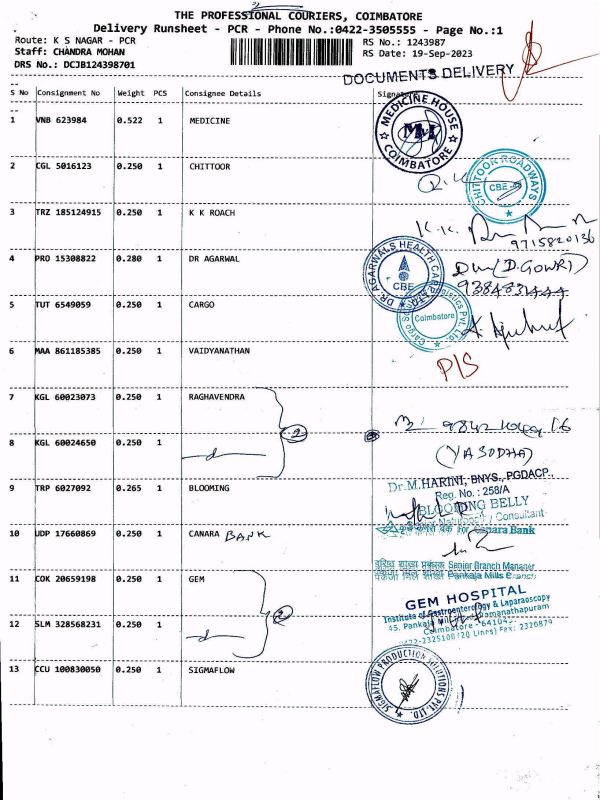 THE PROFESSIONAL COURIERS, COIMBATORE
Delivery Runsheet - PCR - Phone No.:0422-3505555 - Page No.:1
Route: K S NAGAR - PCR
RS No.: 1243987
Staff: CHANDRA MOHAN
RS Date: 19-Sep-2023
DRS No.: DCJB124398701
DOCUMENTS DELIVERY
S No Consignment No Weight PCS Consignee Details
1 VNB 623984 0.522 1 MEDICINE
MEDICINE HOUSE
COIMBATORE
2 CGL 5016123 0.250 1 CHITTOOR
CHITTOOR ROADWAYS
CBE
3 TRZ 185124915 0.250 1 K K ROACH
K.K.
9715820136
4 PRO 15308822 0.280 1 DR AGARWAL
DR. AGARWALS HEALTH CARE
CBE
(D. GOWRI)
5 TUT 6549059 0.250 1 CARGO
Coimbatore
6 MAA 861185385 0.250 1 VAIDYANATHAN
P/S
7 KGL 60023073 0.250 1 RAGHAVENDRA
2
8 KGL 60024650 0.250 1
(YASODHA)
9 TRP 6027092 0.265 1 BLOOMING
Dr.M.HARINI, BNYS., PGDACP.,
Reg. No. : 258/A
BLOOMING BELLY
Consultant
10 UDP 17660869 0.250 1 CANARA BANK
Canara Bank
Senior Branch Manager
Pankaja Mills Branch
11 COK 20659198 0.250 1 GEM
2
GEM HOSPITAL
Institute of Gastroenterology & Laparoscopy
12 SLM 328568231 0.250 1
45, Pankaja Mill Road, Ramanathapuram
Coimbatore - 641045
0422-2325100 (20 Lines) Fax: 2320879
13 CCU 100830050 0.250 1 SIGMAFLOW
SIGMAFLOW PRODUCTION SOLUTIONS PVT. LTD.